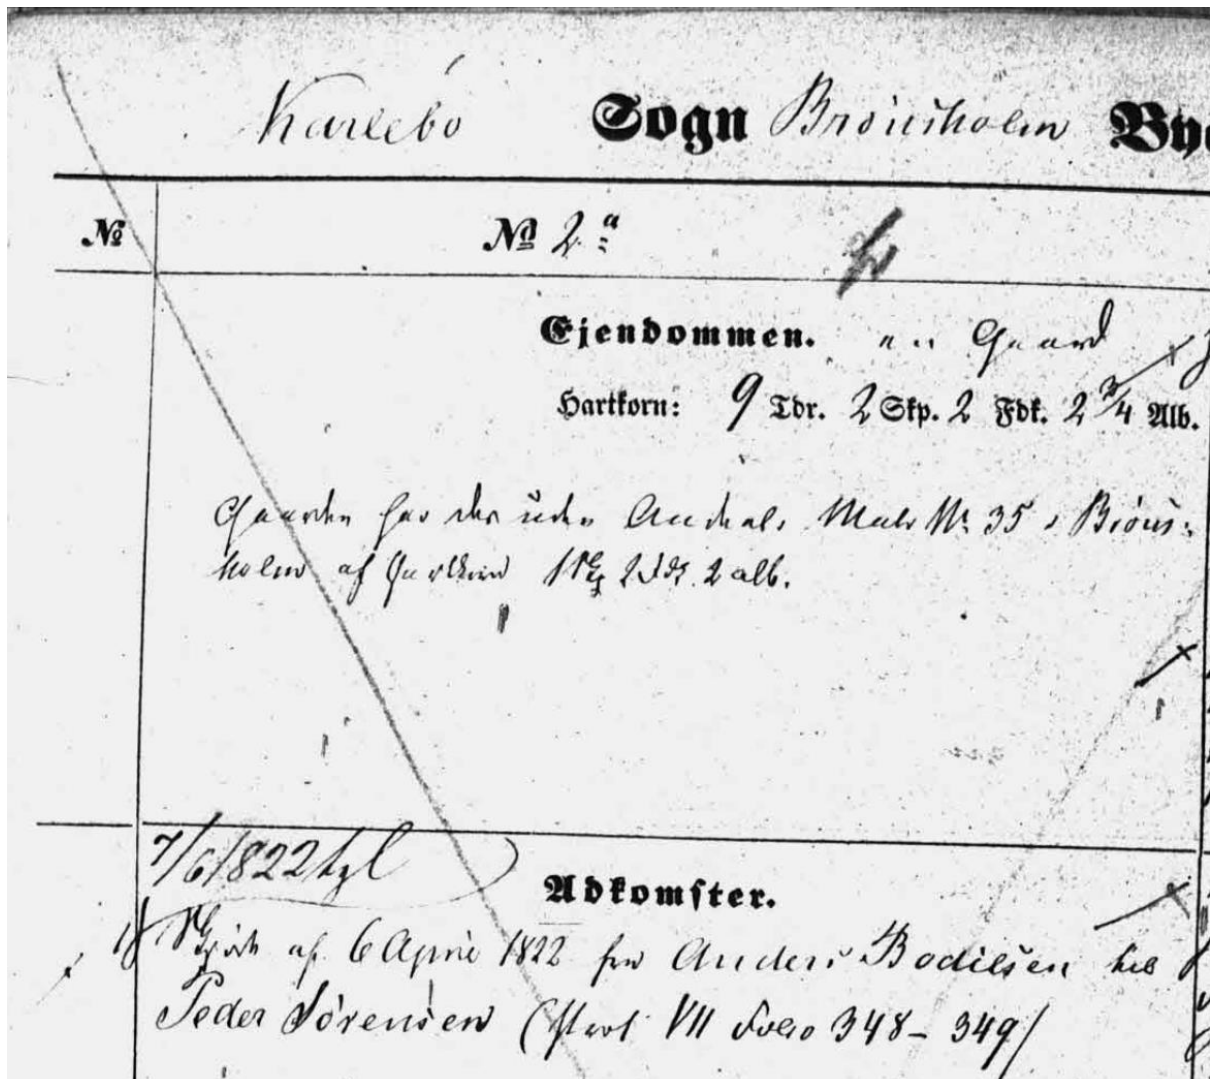 Karlebo Sogn Brönsholm By
№ № 2 a
Ejendommen. en Gaard
Hartkorn: 9 Tdr. 2 Skp. 2 Fdk. 2 3/4 Alb.
Gaarden har des uden Andeel i Matr № 35 i Bröns-
holm af Hartkorn 1 Skp 2 Fdk. 2 alb.
7/6 1822 tgl
Adkomster.
Skjöde af 6 April 1822 fra Anders Bodilsen til
Peder Sörensen (Prot VII Folio 348-349/